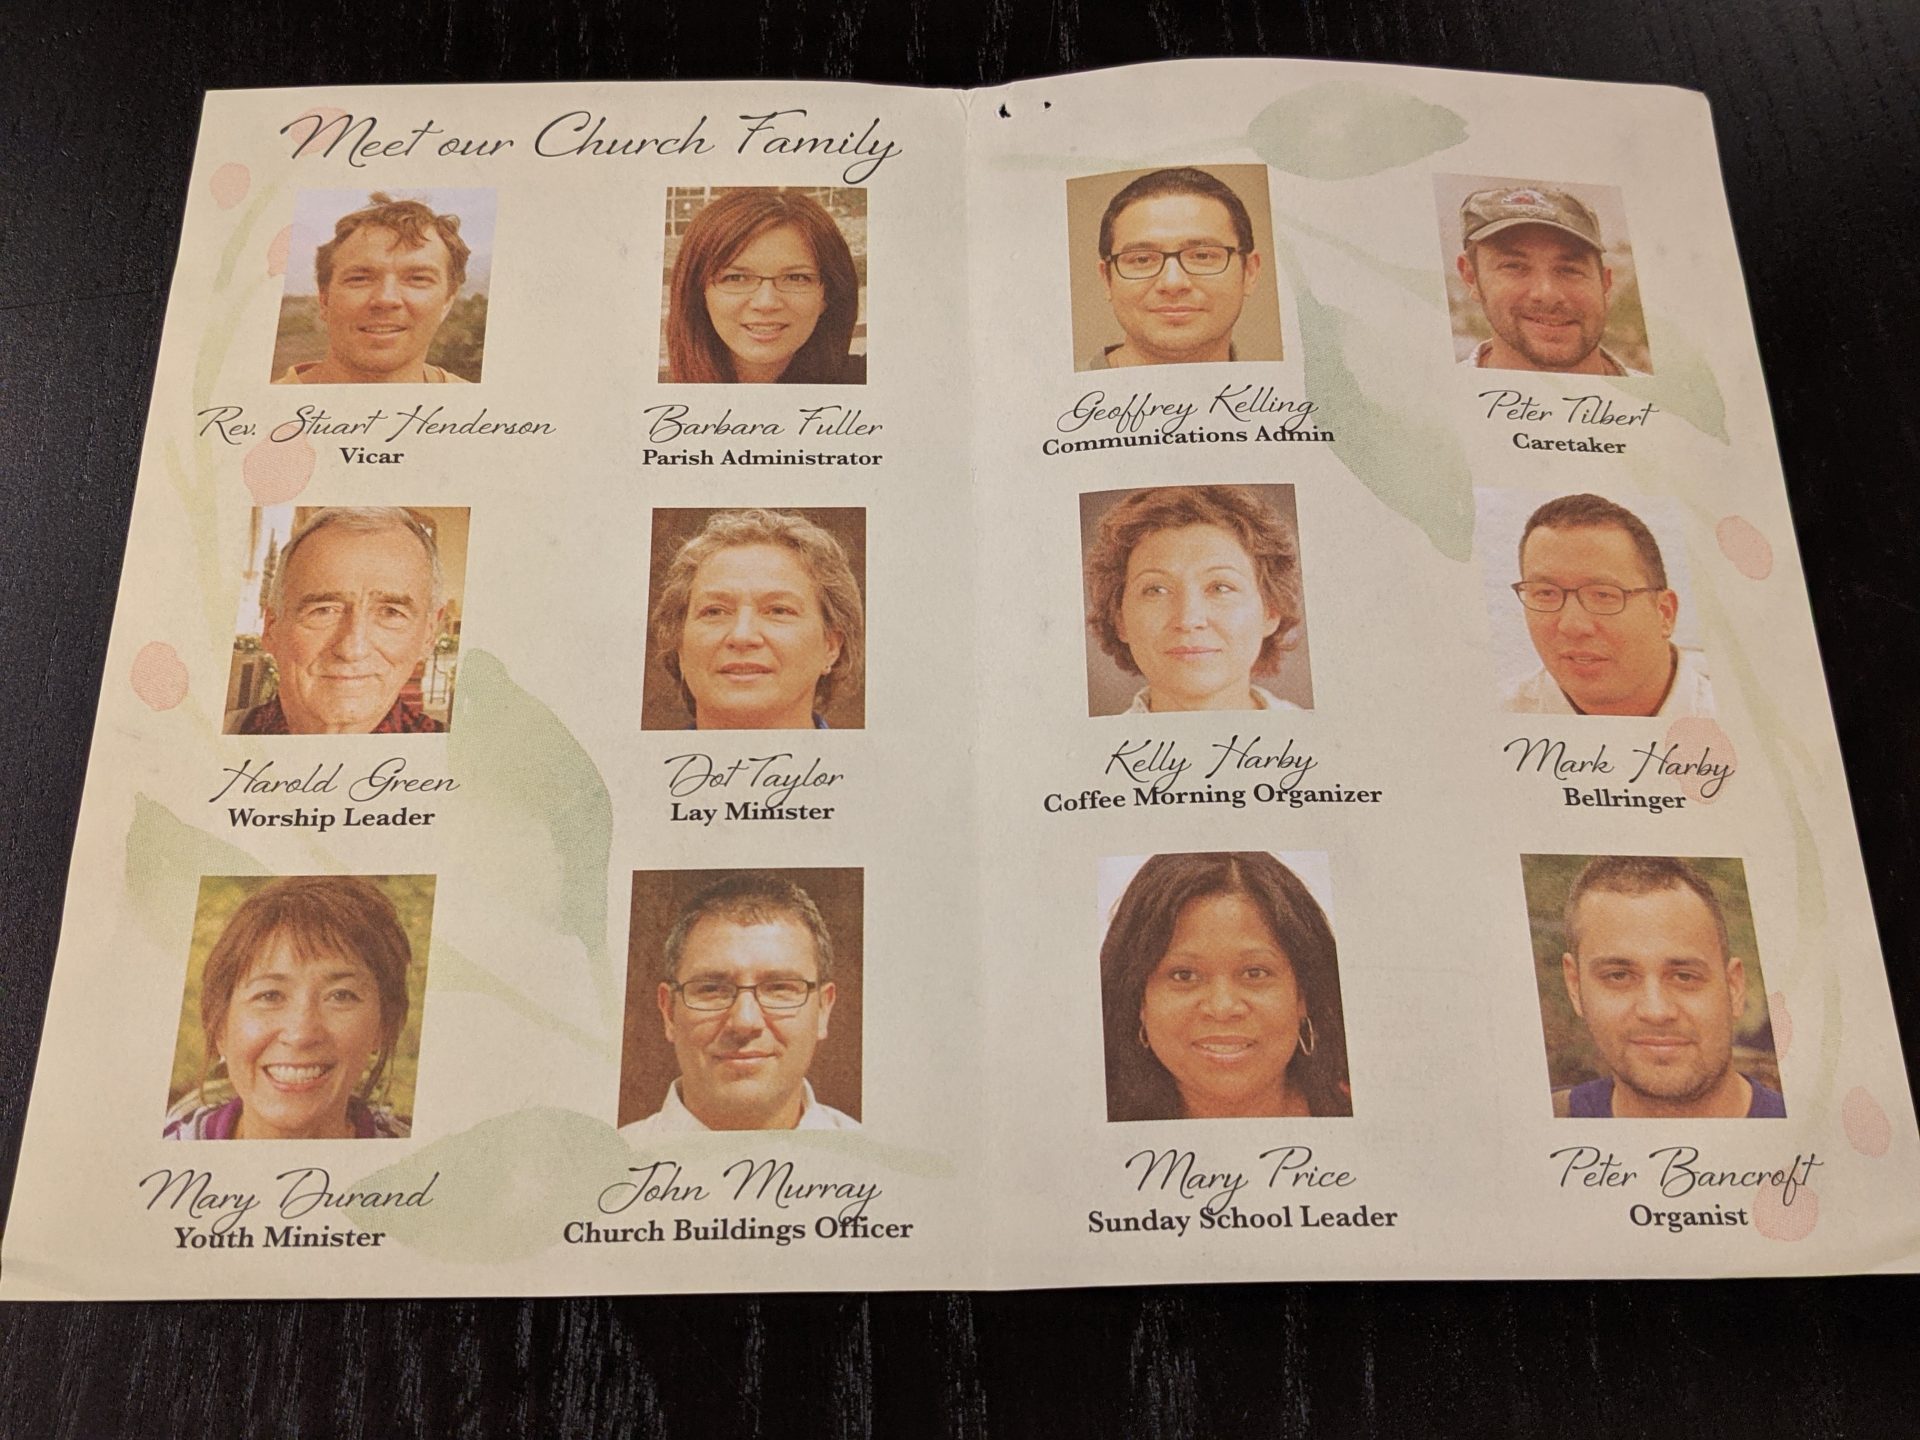 Meet our Church Family
Rev. Stuart Henderson
Vicar
Barbara Fuller
Parish Administrator
Geoffrey Kelling
Communications Admin
Peter Tilbert
Caretaker
Harold Green
Worship Leader
Dot Taylor
Lay Minister
Kelly Harby
Coffee Morning Organizer
Mark Harby
Bellringer
Mary Durand
Youth Minister
John Murray
Church Buildings Officer
Mary Price
Sunday School Leader
Peter Bancroft
Organist